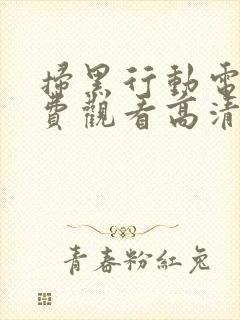 掃黑行動電
費觀看高清
青春粉紅兔